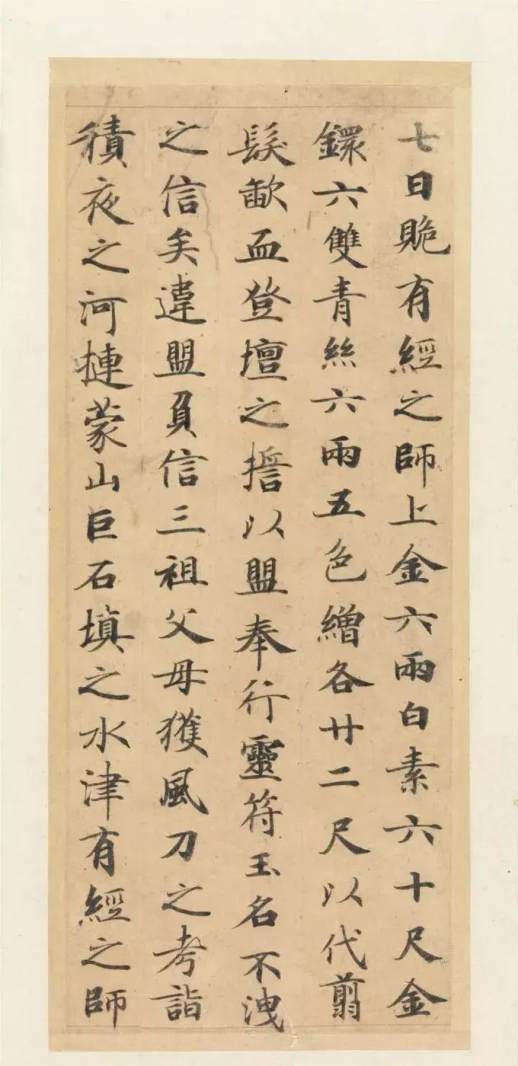 七日賍有經之師上金六兩白素六十尺金
鐶六雙青絲六兩五色繒各廿二尺以代翦
髮歃血登壇之誓以盟奉行靈符玉名不洩
之信矣違盟負信三祖父母獲風刀之考詣
積夜之河摙蒙山巨石填之水津有經之師